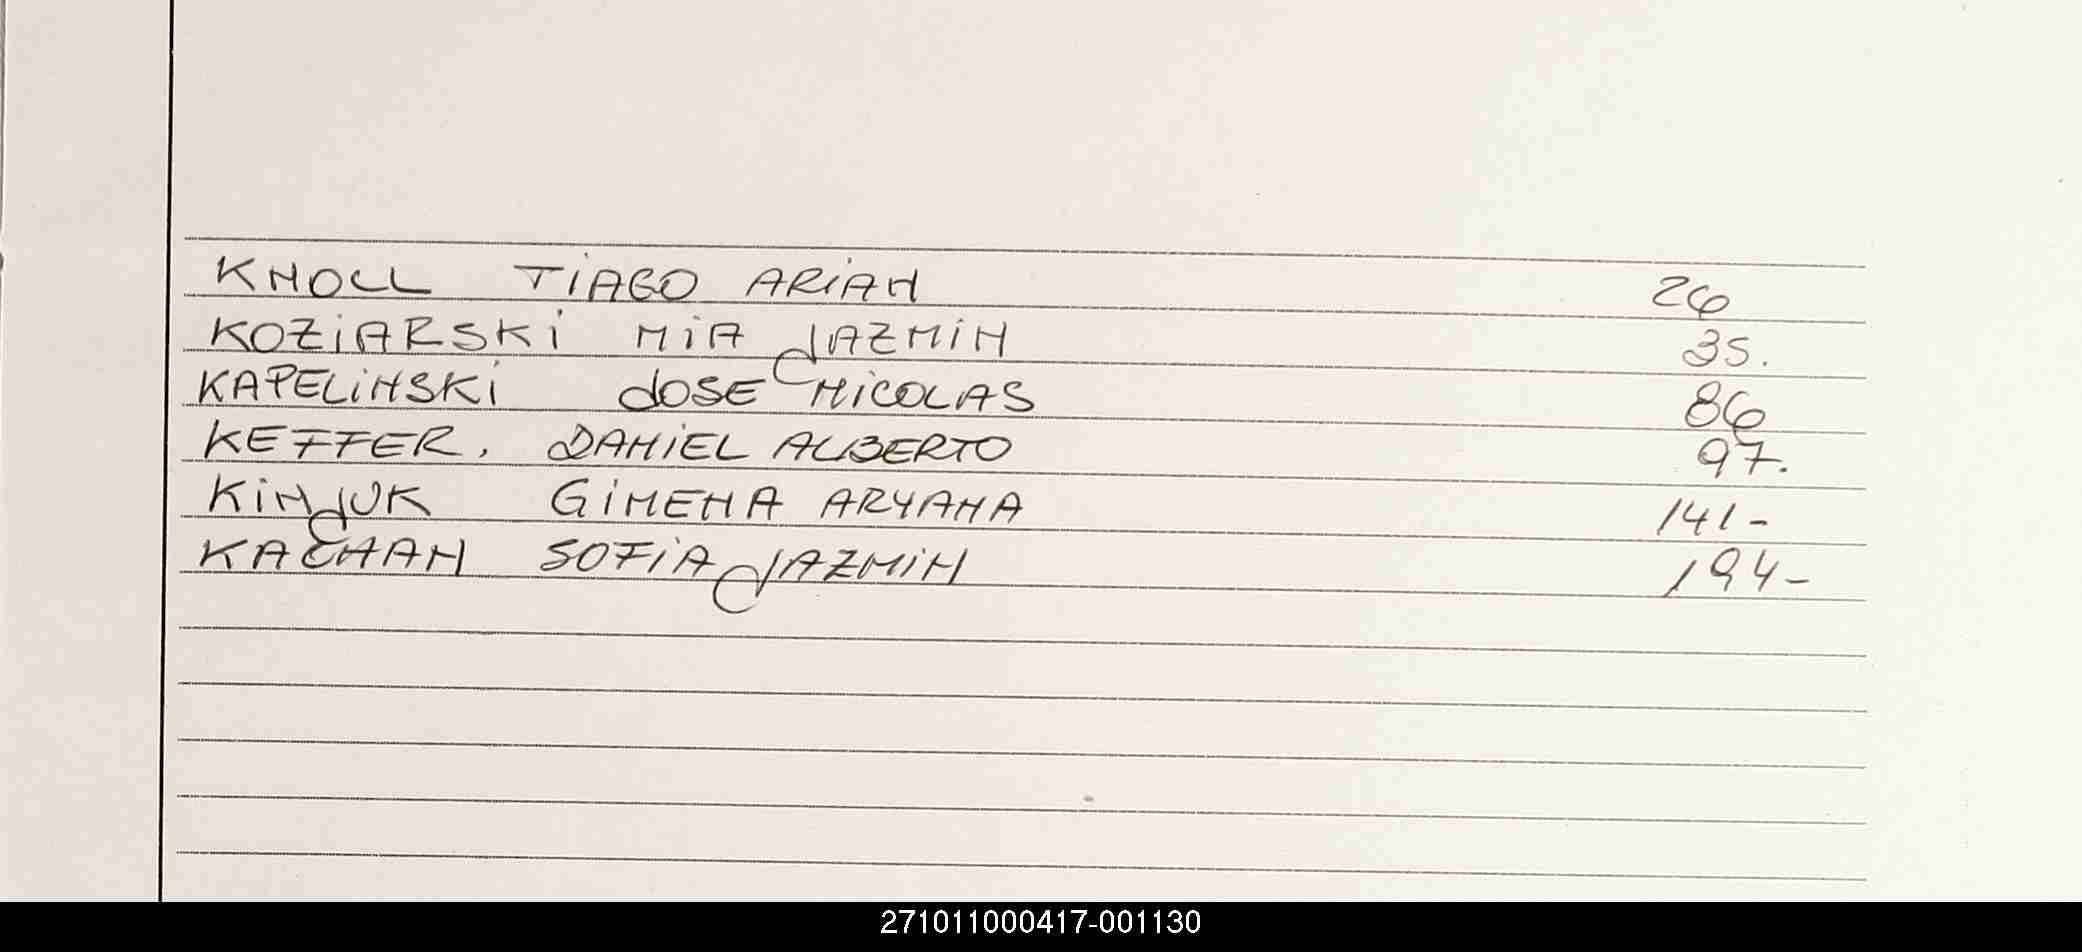 KNOLL TIAGO ARIAN 26
KOZIARSKI MIA JAZMIN 35.
KAPELINSKI JOSE NICOLAS 86
KEFFER, DANIEL ALBERTO 97.
KINJUK GIMENA ARYANA 141-
KACHAN SOFIA JAZMIN 194-
271011000417-001130